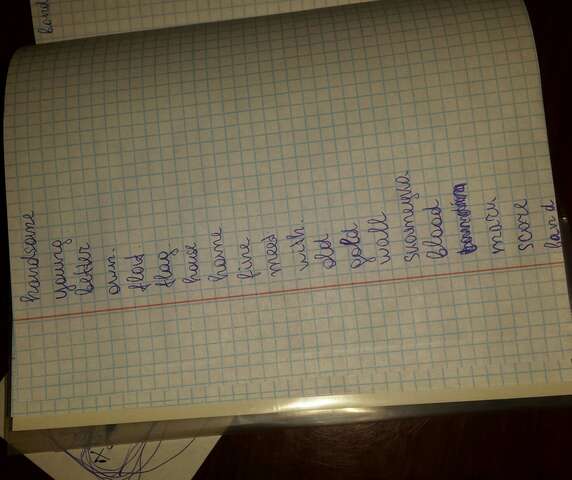 handsome
young
better
own.
flat
flag
house
home
fine
meet
with.
old
gold
wall
blood
many
score
band